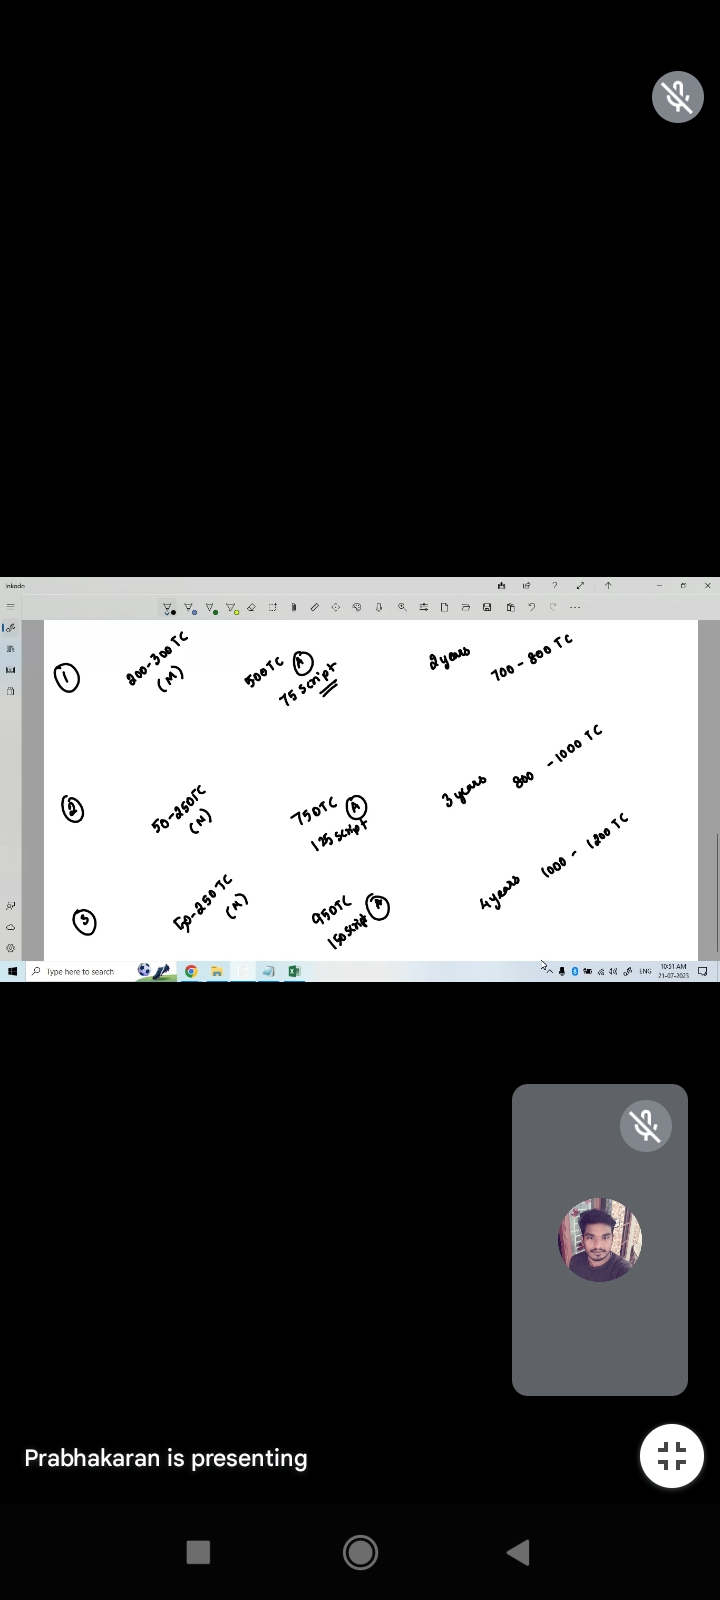 inkodo
1 200-300TC (M) 500TC A 75 script 2 years 700 - 800 TC
2 50-250TC (M) 750TC A 125 script 3 years 800 - 1000 TC
3 50-250TC (M) 950TC A 150 script 4 years 1000 - 1200 TC
Type here to search ENG 10:51 AM
21-07-2023
Prabhakaran is presenting